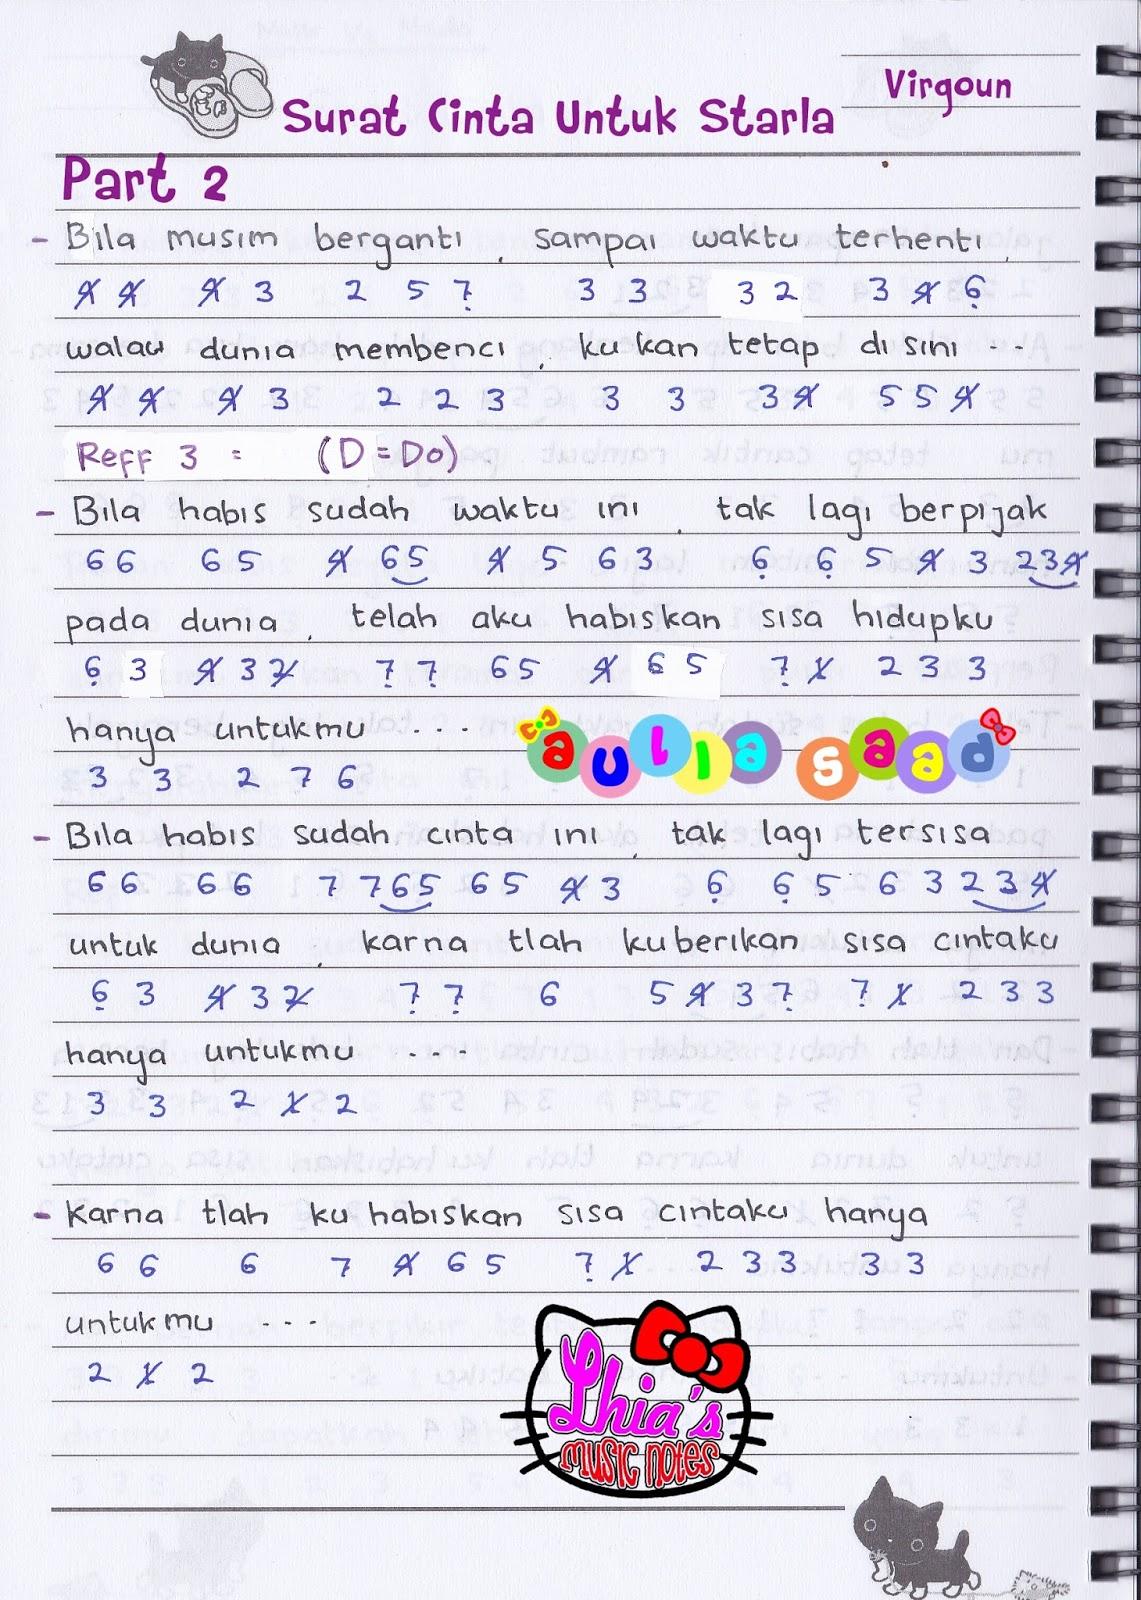 Virgoun
Surat Cinta Untuk Starla
Part 2
- Bila musim berganti, sampai waktu terhenti,
4̸ 4̸ 4̸ 3 2 5 7̣ 3 3 3 2 3 4̸ 6̣
walau dunia membenci, ku kan tetap di sini ...
4̸ 4̸ 4̸ 3 2 2 3 3 3 3 4̸ 5 5 4̸
Reff 3 : (D=Do)
- Bila habis sudah waktu ini, tak lagi berpijak
6 6 6 5 4̸ 6 5 4̸ 5 6 3 6̣ 6̣ 5 4̸ 3 2 3 4̸
pada dunia, telah aku habiskan sisa hidupku
6̣ 3 4̸ 3 2̸ 7̣ 7̣ 6 5 4̸ 6 5 7̣ 1̸ 2 3 3
hanya untukmu ....
3 3 2 7 6
aulia saad
- Bila habis sudah cinta ini, tak lagi tersisa
6 6 6 6 7 7 6 5 6 5 4̸ 3 6̣ 6̣ 5 6 3 2 3 4̸
untuk dunia, karna tlah kuberikan sisa cintaku
6̣ 3 4̸ 3 2̸ 7̣ 7̣ 6 5 4̸ 3 7̣ 7̣ 1̸ 2 3 3
hanya untukmu ....
3 3 2 1̸ 2
- Karna tlah ku habiskan sisa cintaku hanya
6 6 6 7 4̸ 6 5 7̣ 1̸ 2 3 3 3 3
untukmu ...
2 1̸ 2
Lhia's
MUSIC NOTES